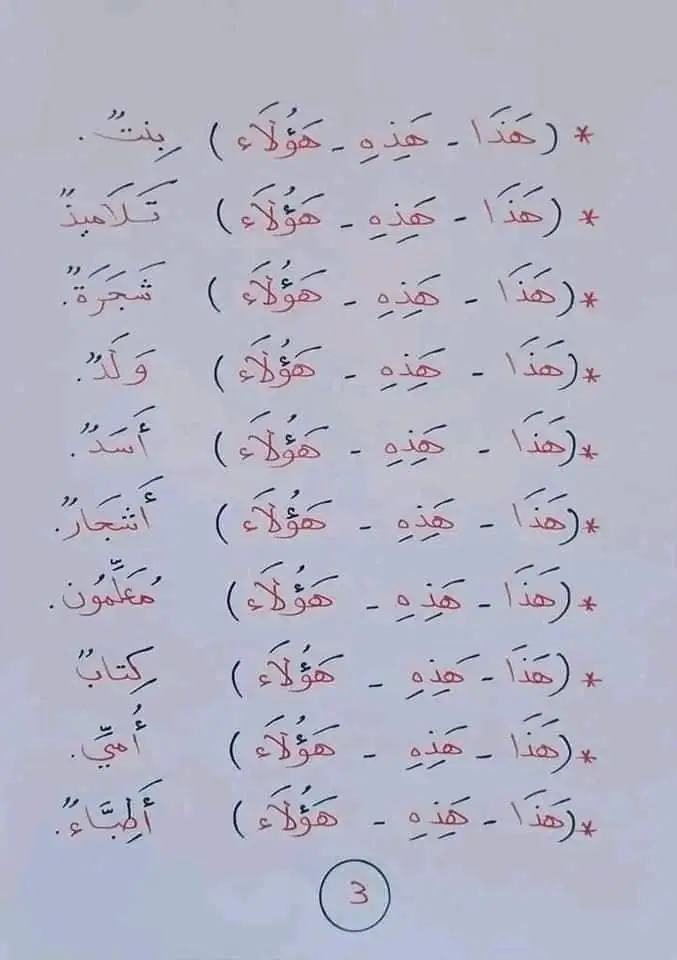 * (هَذَا - هَذِهِ - هَؤُلَاَء ) بِنتٌ.
* (هَذَا - هَذِهِ - هَؤُلَاَء ) تَلَامِيذٌ
* (هَذَا - هَذِهِ - هَؤُلَاَء ) شَجَرَةٌ.
* (هَذَا - هَذِهِ - هَؤُلَاَء ) وَلَدٌ.
* (هَذَا - هَذِهِ - هَؤُلَاَء ) أَسَدٌ.
* (هَذَا - هَذِهِ - هَؤُلَاَء ) أَشجَارٌ.
* (هَذَا - هَذِهِ - هَؤُلَاَء ) مُعَلِّمُون.
* (هَذَا - هَذِهِ - هَؤُلَاَء ) كِتابٌ
* (هَذَا - هَذِهِ - هَؤُلَاَء ) أُمِّي.
* (هَذَا - هَذِهِ - هَؤُلَاَء ) أَطِبَّاءٌ.
3